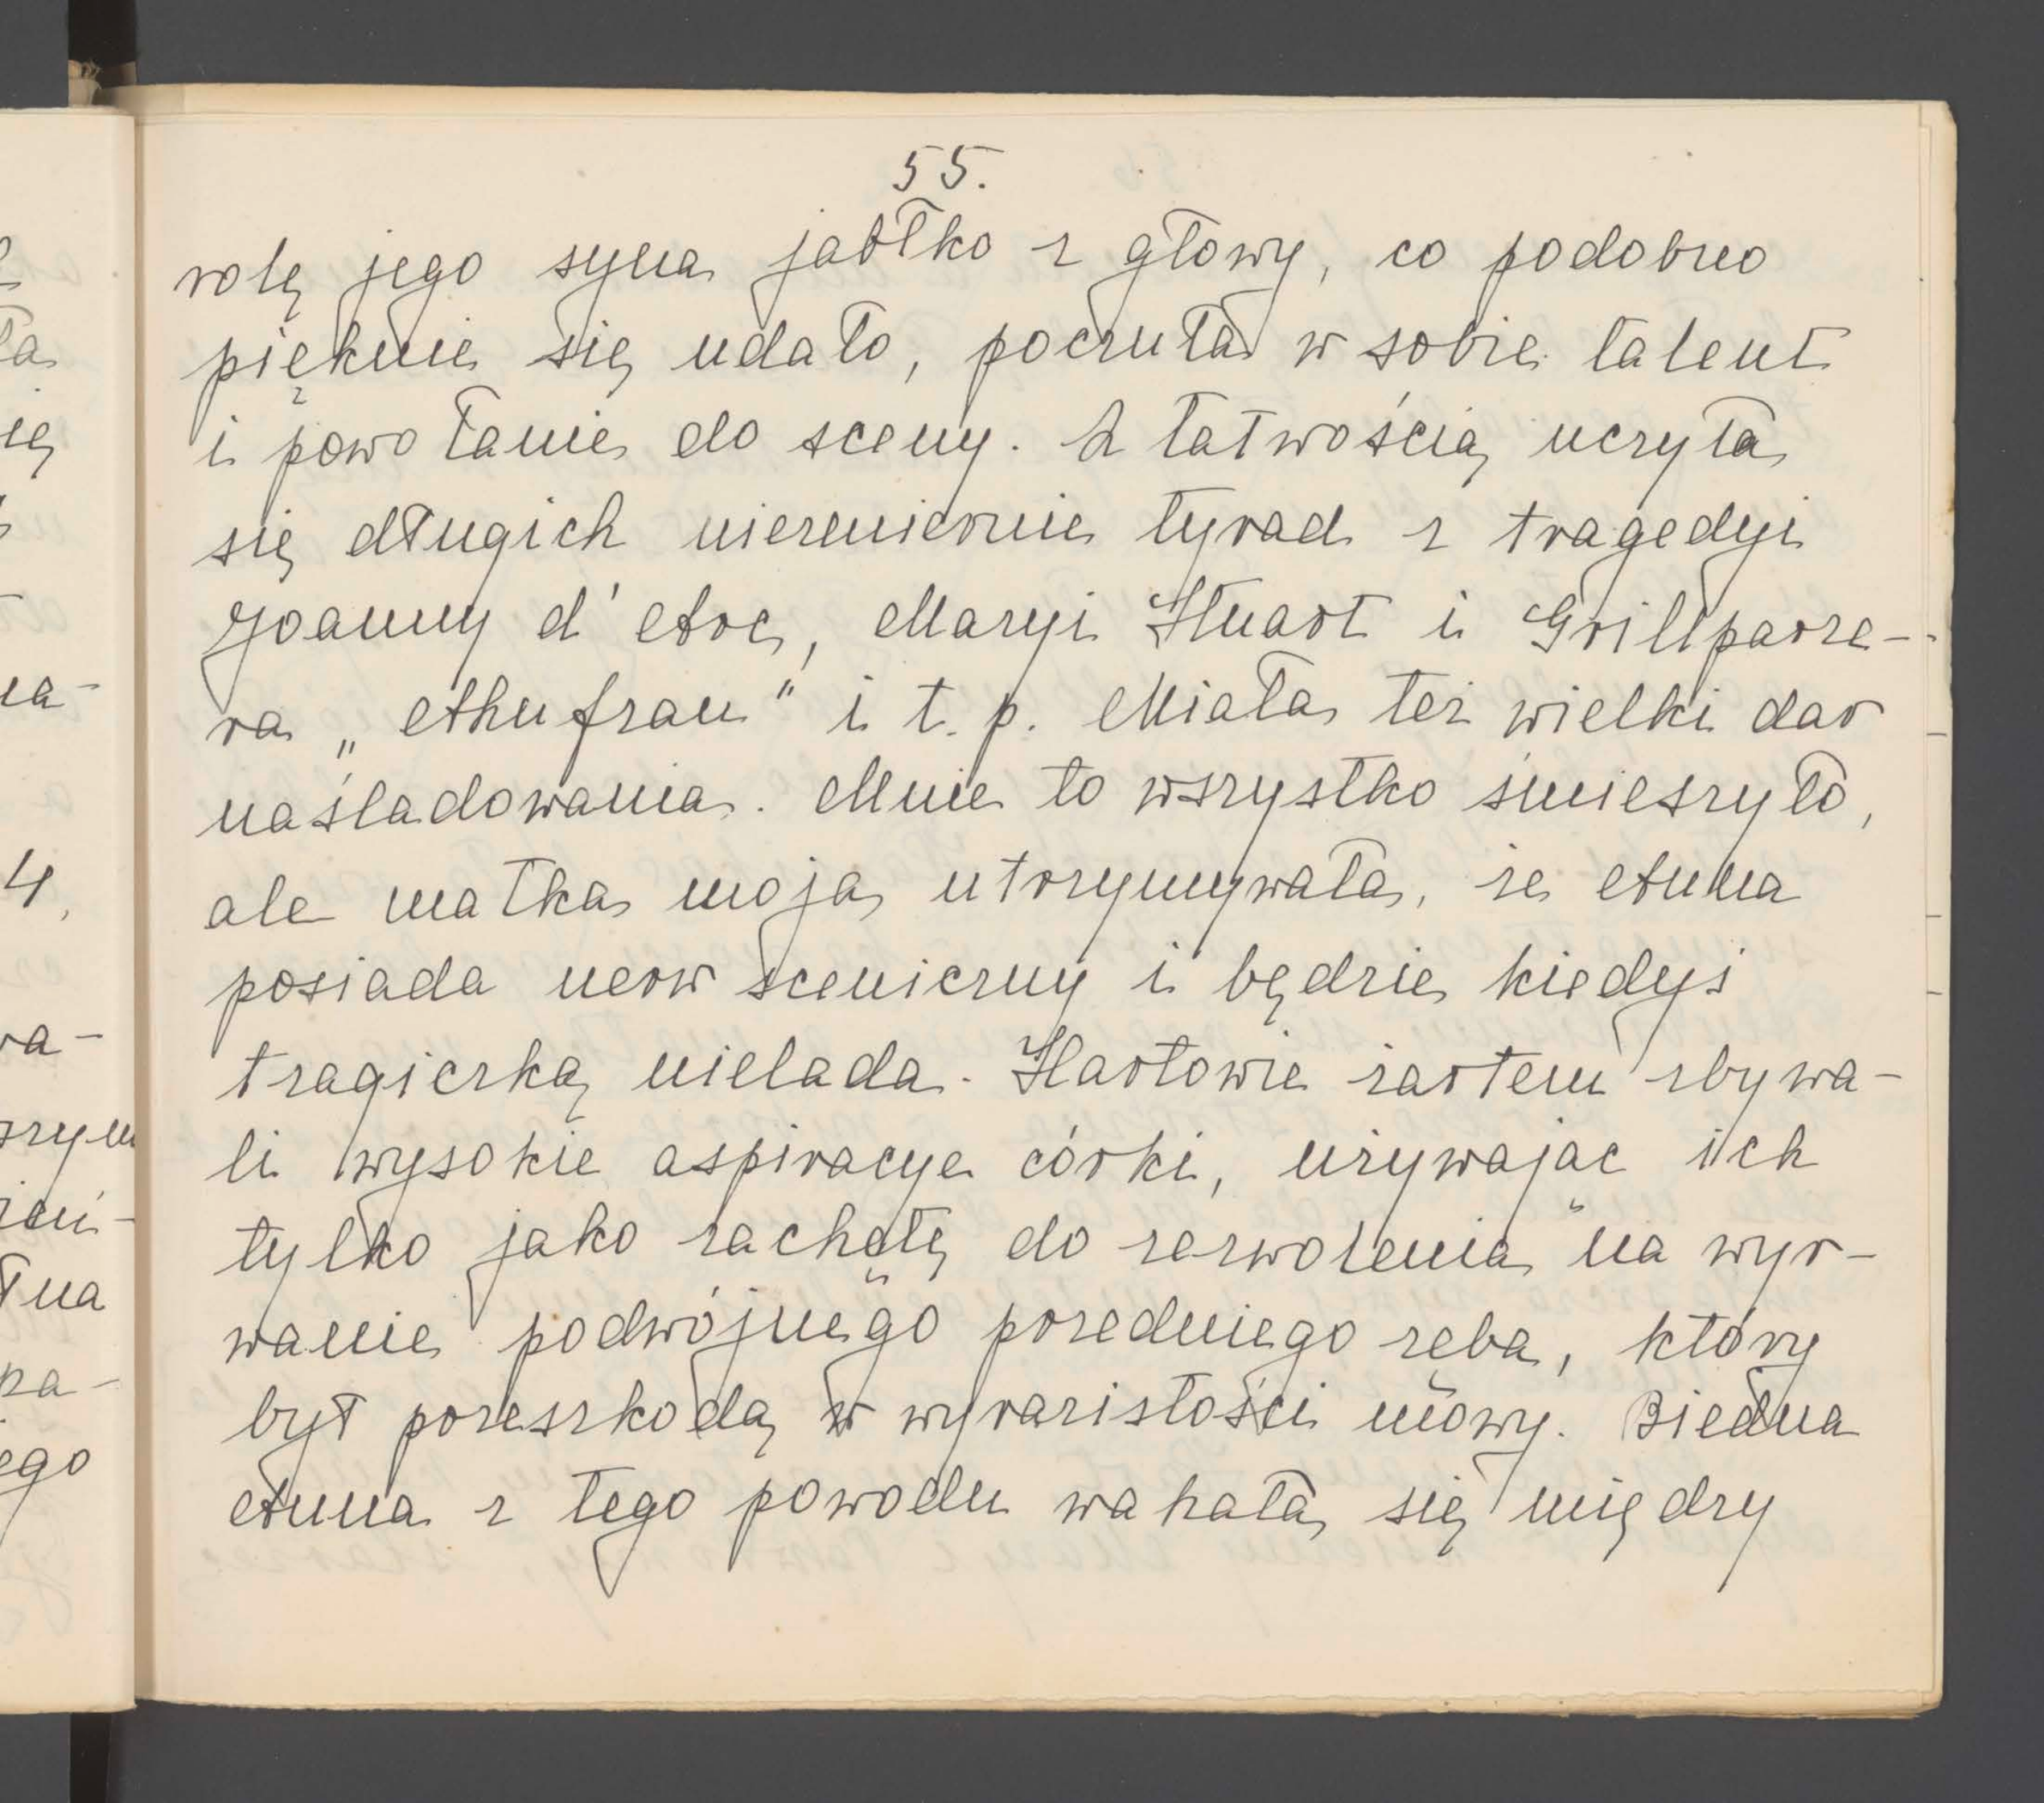 55.
rolę jego syna jabłko z głowy, co podobno
pięknie się udało, poczuła w sobie talent
i powołanie do sceny. Z łatwością uczyła
się długich niezmiernie tyrad z tragedyi
Joanny d'Arc, Maryi Stuart i Grillparze-
ra „Ahnfrau" i t. p. Miała też wielki dar
naśladowania. Mnie to wszystko śmieszyło,
ale matka moja utrzymywała, że Anna
posiada nerw sceniczny i będzie kiedyś
tragiczką nielada. Hartowie żartem zbywa-
li wysokie aspiracye córki, używając ich
tylko jako zachętę do zezwolenia na wyr-
wanie podwójnego przedniego zęba, który
był przeszkodą w wyrazistości mowy. Biedna
Anna z tego powodu wahała się między